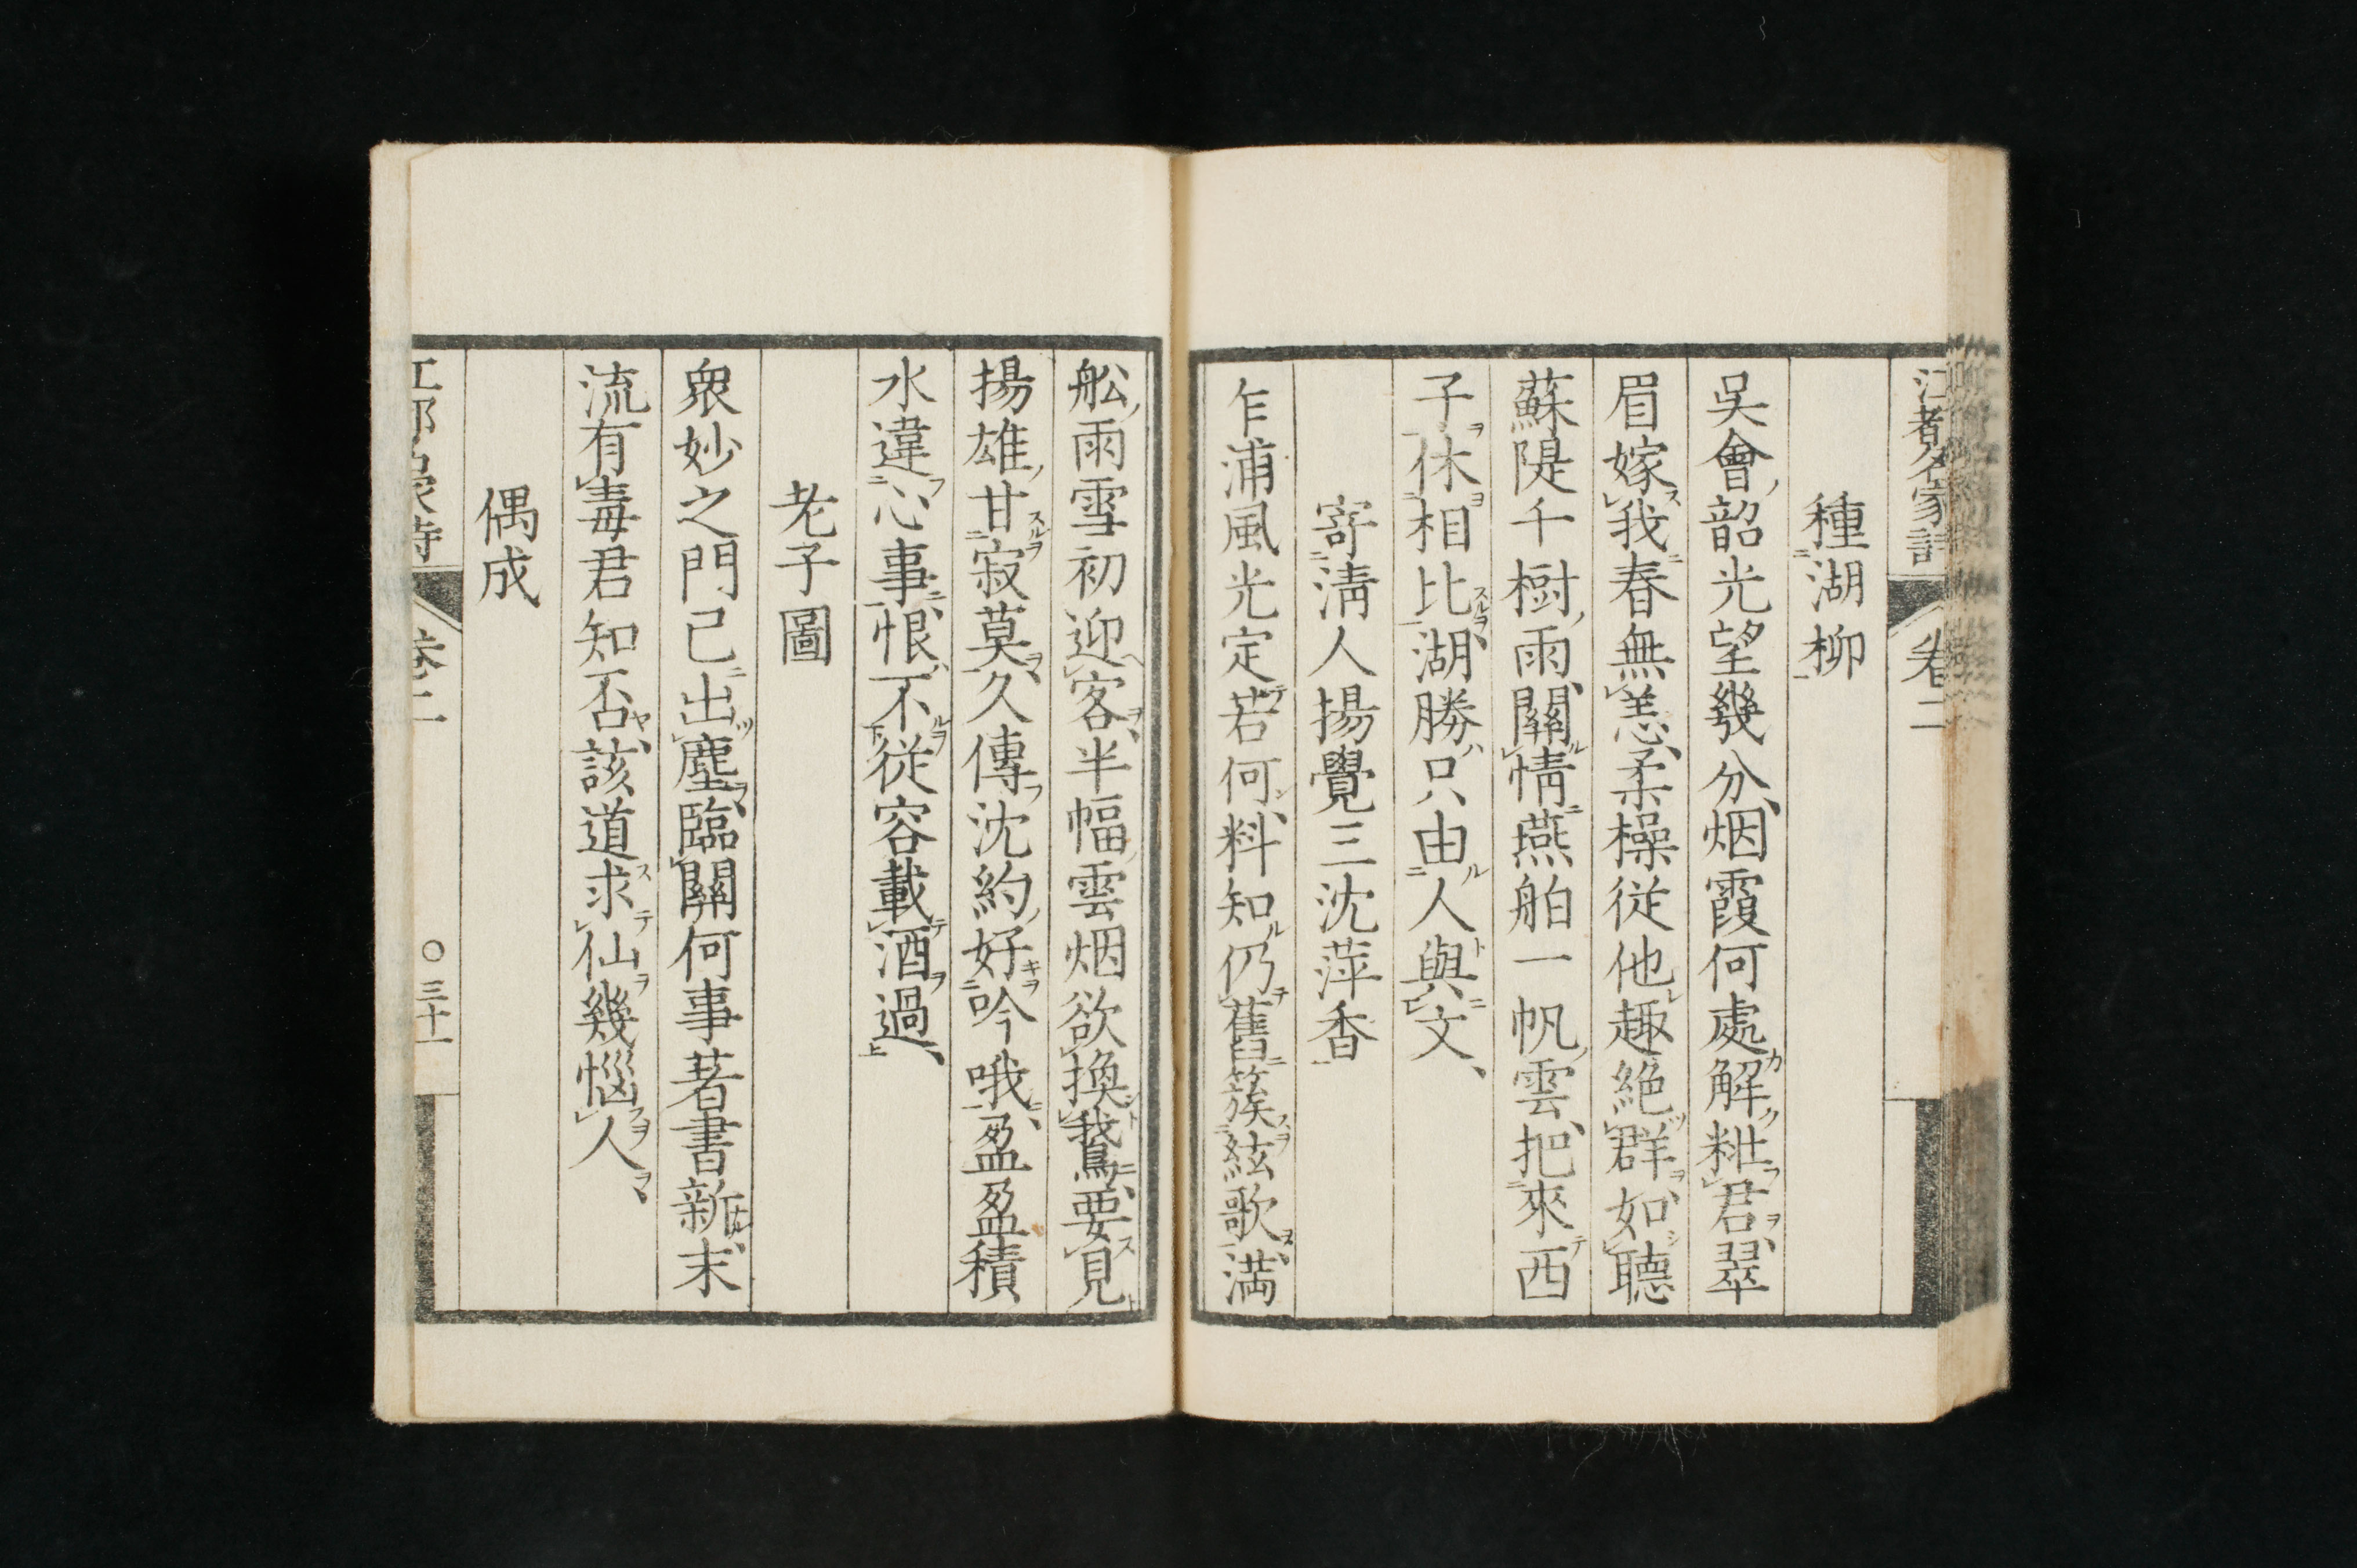 江都名家詩 卷二
種湖柳
吳會韶光望幾分烟霞何處解粧君翠
眉嫁我春無恙柔橾従他趣絶群如聽
蘇隄千樹雨關情燕舶一帆雲把來西
子休相比湖勝只由人與文
寄清人揚覺三沈萍香
乍浦風光定若何料知仍舊簇絃歌満
舩雨雪初迎客半幅雲烟欲換鵞要見
揚雄甘寂莫久傳沈約好吟哦盈盈積
水違心事恨不従容載酒過
老子圖
衆妙之門已出塵臨關何事著書新末
流有毒君知否該道求仙幾惱人
偶成
江都名家詩 卷二 〇三十一